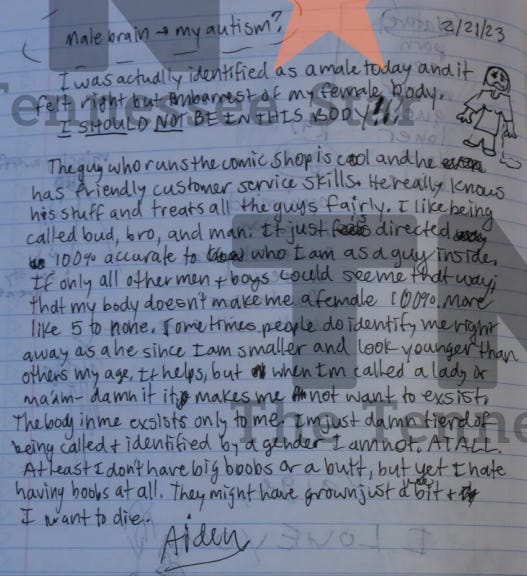 male brain → my autism?
2/21/23
I was actually identified as a male today and it
felt right but imbarrest of my female body.
I SHOULD NOT BE IN THIS BODY!!!
The guy who runs the comic shop is cool and he
has friendly customer service skills. He really knows
his stuff and treats all the guys fairly. I like being
called bud, bro, and man. It just directed
100% accurate to who I am as a guy inside.
If only all other men + boys could see me that way;
that my body doesn't make me a female 100%. More
like 5 to none. Sometimes, people do identify me right
away as a he since I am smaller and look younger than
others my age. It helps, but when I'm called a lady or
ma'am- damn it it makes me not want to exsist.
The body in me exsists only to me. I'm just damn tierd of
being called + identified by a gender I am not. AT ALL.
At least I don't have big boobs or a butt, but yet I hate
having boobs at all. They might have grown just a bit +
I want to die.
Aiden
Tennessee Star
The Tenne